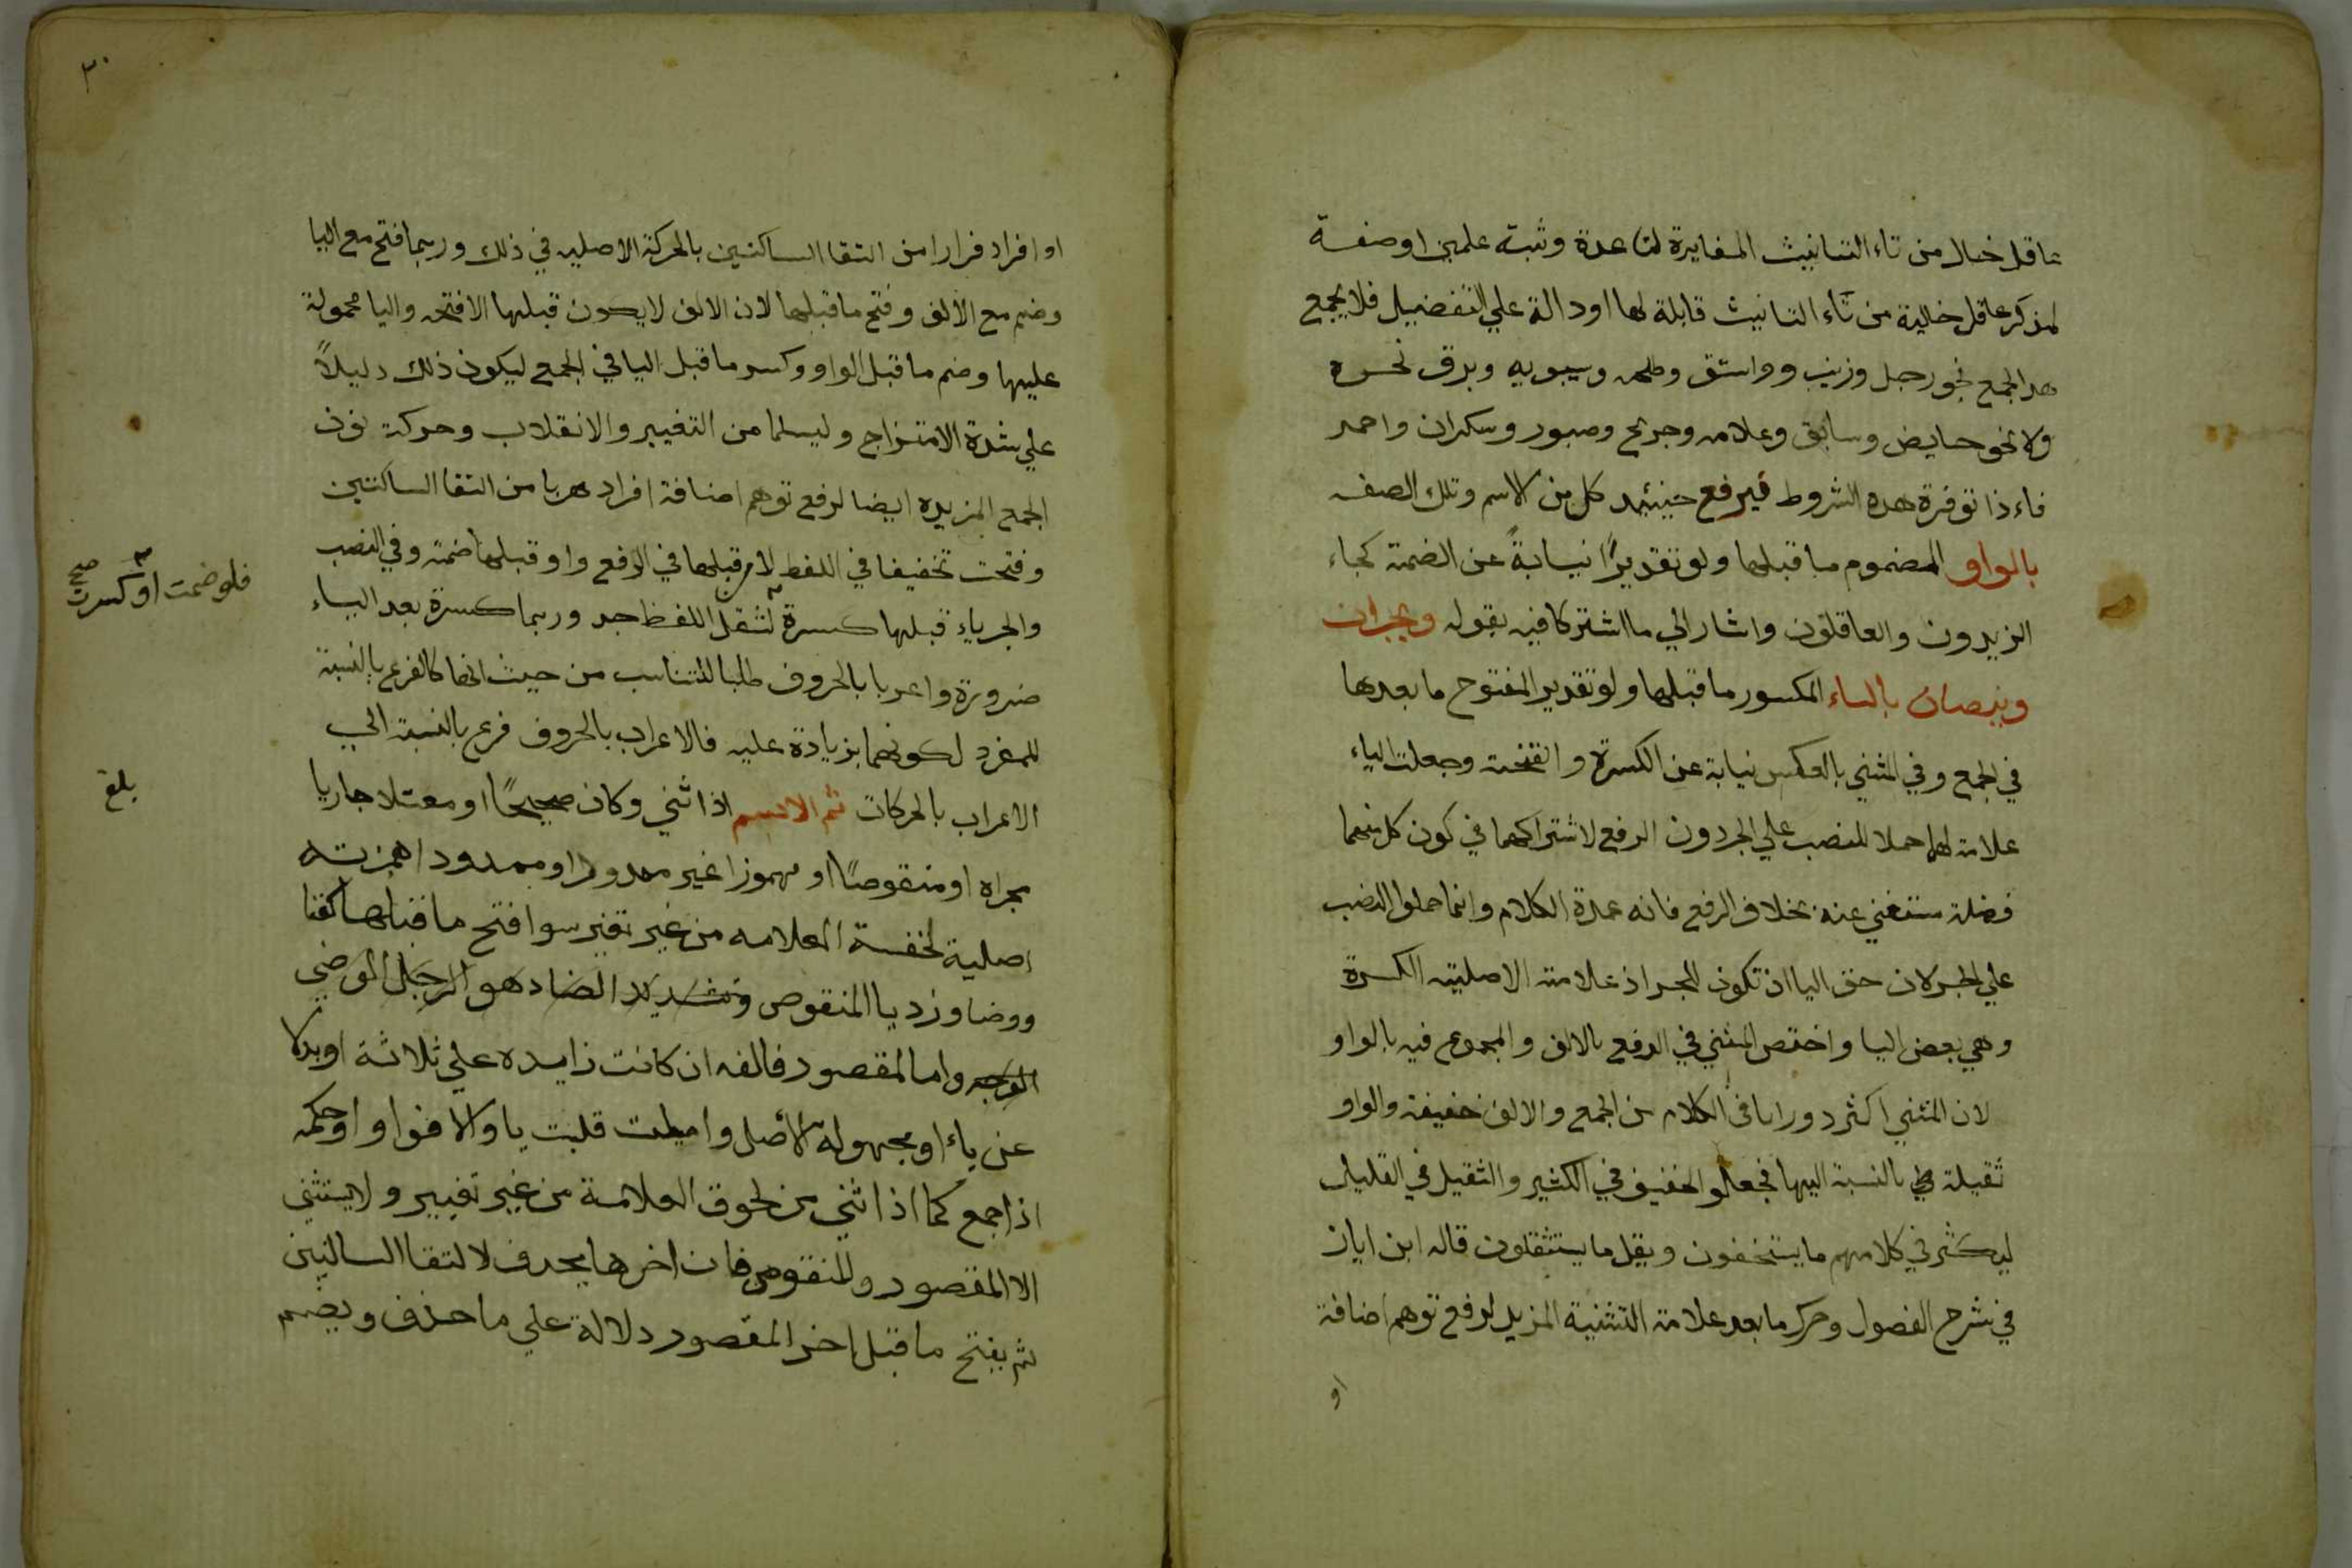 عاقل خال من تاء التانيث المغايرة لتا عدة وثبة علمين او صفة
لمذكر عاقل خالية من تاء التانيث قابلة لها او دالة علي التفضيل فلا يجمع
هذا الجمع نحو رجل وزينب وواشق وطلحه وسيبويه وبرق نحره
ولا نحو حايض وسابق وعلامه وجريح وصبور وسكران واحمر
فاءذا توفرة هذه الشروط فيرفع حينئد كل من الاسم وتلك الصفه
بالواو المضموم ما قبلها ولو تقديرًا نيابةً عن الضمة كجاء
الزيدون والعاقلون واشار الي ما اشتركا فيه بقوله ويجران
وينصبان بالياء المكسور ما قبلها ولو تقدير المفتوح ما بعدها
في الجمع وفي المثني بالعكس نيابة عن الكسرة والفتحة وجعلت الياء
علامة لهما حملا للنصب علي الجر دون الرفع لاشتراكهما في كون كل منهما
فضلة مستغني عنه بخلاف الرفع فانه عمدة الكلام وانما حملوا النصب
علي الجر لان حق اليا ان تكون للجر اذ علامته الاصلية الكسرة
وهي بعض اليا واختص المثني في الرفع بالالف والمجموع فيه بالواو
لان المثني اكثر دورانا في الكلام من الجمع والالف خفيفة والواو
ثقيلة بالنسبة اليها فجعلوا الخفيف في الكثير والثقيل في القليل
ليكثر في كلامهم ما يستخفون ويقل ما يستثقلون قاله ابن اياز
في شرح الفصول وحرك ما بعد علامة التثنية المزيد لرفع توهم اضافة
او
٣٠
او افراد فرارا من التقا الساكنين بالحركة الاصليه في ذلك وربما فتح مع اليا
وضم مع الالف وفتح ما قبلها لان الالف لا يكون قبلها الا فتحه واليا محمولة
عليها وضم ما قبل الواو وكسر ما قبل اليا في الجمع ليكون ذلك دليلاً
علي شدة الامتزاج وليسلما من التغيير والانقلاب وحركة نون
الجمع المزيده ايضا لرفع توهم اضافة افراد هربا من التقا الساكنين
وفتحت تخفيفا في اللفظ لان قبلها في الرفع واو قبلها ضمة وفي النصب
والجر ياء قبلها كسرة لثقل اللفظ جد وربما كسرة بعد الياء
فلو ضمت او كسرت صح
ضرورة واعربا بالحروف طلبا للتناسب من حيث انهما كالفرع بالنسبة
للمفرد لكونهما بزيادة عليه فالاعراب بالحروف فرع بالنسبة الي
الاعراب بالحركات ثم الاسم اذا ثني وكان صحيحًا او معتلا جاريا
بلغ
مجراه او منقوصًا او مهموزا غير ممدود او ممدودا همزته
اصلية لحقسة العلامه من غير تغير سوا فتح ما قبلها كقنا
ووضا وزد يا المنقوص وتشديد الضاد هو الرجل الوضي
الوجه واما المقصور فالفه ان كانت زايده علي ثلاثة او بدلا
عن ياء او مجهولة الأصل واميلت قلبت يا والا فواوا وحكمه
اذا جمع كما اذا ثني من لحوق العلامة من غير تغيير ولا يستثني
الا المقصور والمنقوص فان اخرها يحدف لالتقا الساكنين
ثم يفتح ما قبل اخر المقصور دلالة علي ما حذف ويضم